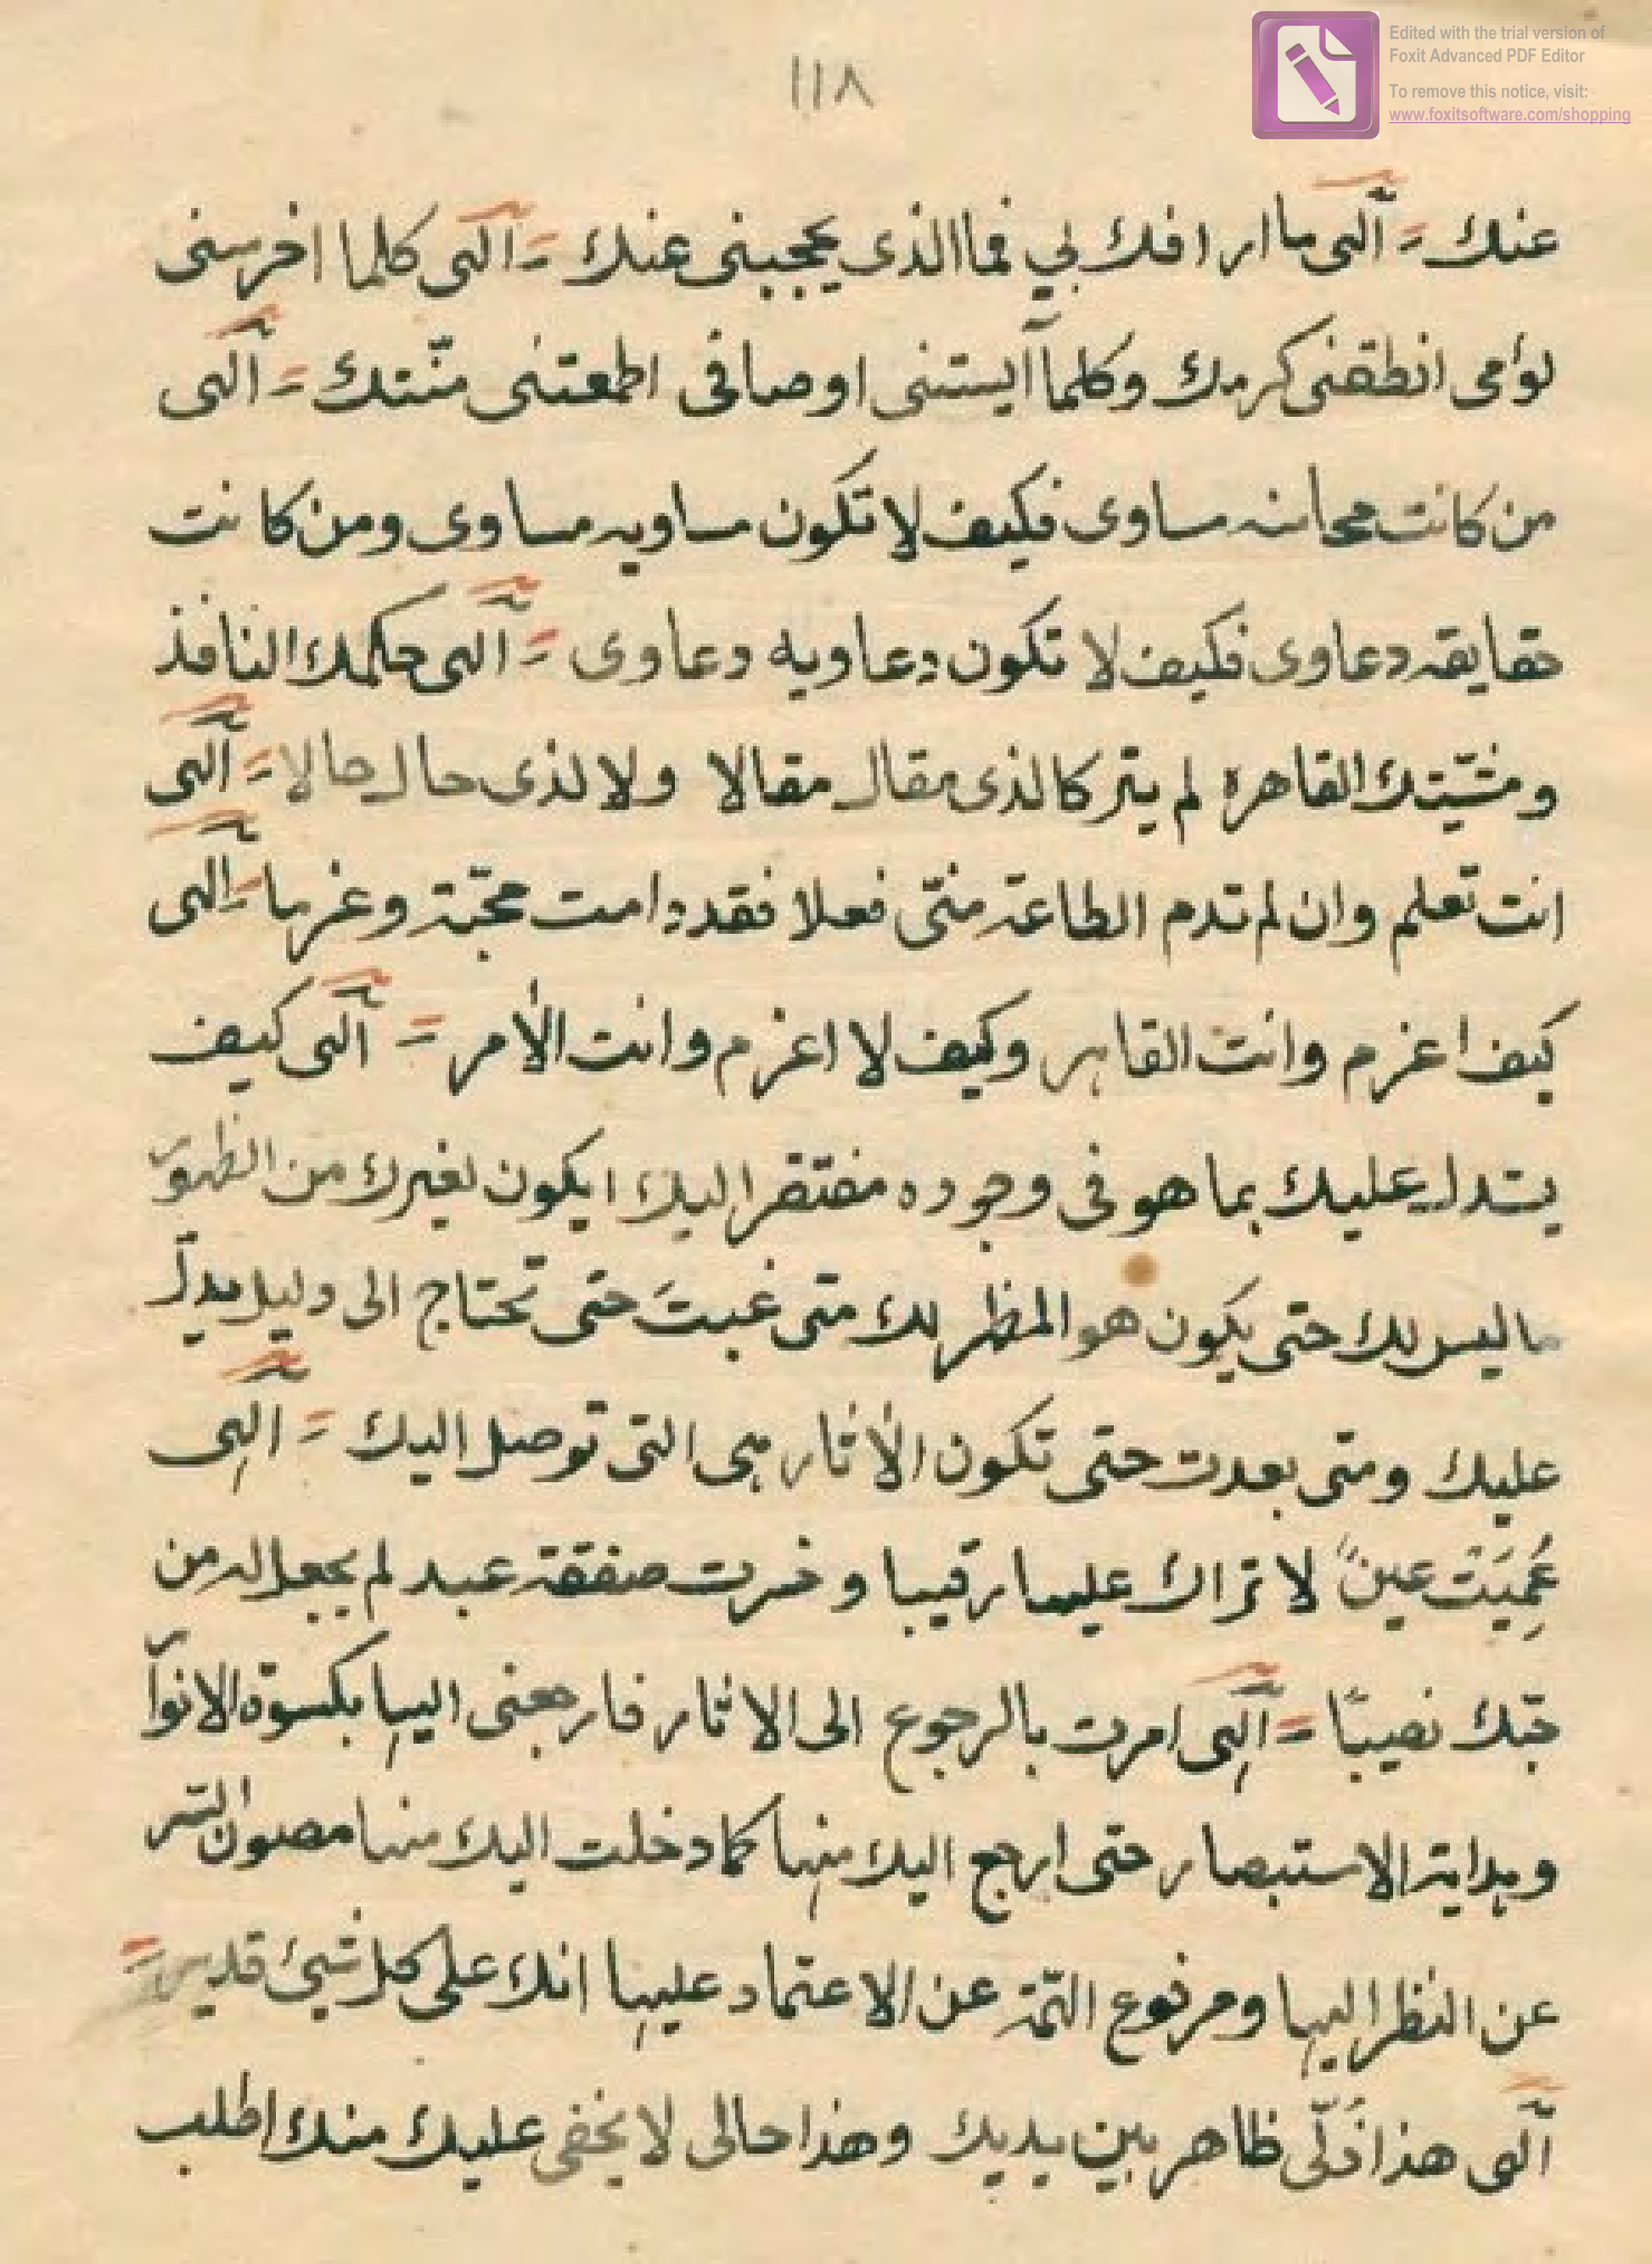 Edited with the trial version of
Foxit Advanced PDF Editor
To remove this notice, visit:
www.foxitsoftware.com/shopping
١١٨
عنك = آلٓهى ما ارافك بي فما الذى يحجبنى عنك = آلٓهى كلما اخرسنى
لوٴمى انطقنى كرمك وكلما آيستنى اوصافى اطمعتنى منّتك = آلٓهى
من كانت محاسنه مساوى فكيف لا تكون مساويه مساوى ومن كانت
حقايقه دعاوى فكيف لا تكون دعاويه دعاوى = آلٓهى حكمك النافذ
ومشيّتك القاهره لم يتركا لذى مقال مقالا ولا لذى حال حالا = آلٓهى
انت تعلم وان لم تدم الطاعة منّى فعلا فقد دامت محبّة وعزما = آلٓهى
كيف اعزم وانت القاهر وكيف لا اعزم وانت الأمر = آلٓهى كيف
يستدل عليك بما هو فى وجوده مفتقر اليك ايكون لغيرك من الظهور
ما ليس لك حتى يكون هو المظهر لك متى غبتَ حتى تحتاج الى دليل يدلّ
عليك ومتى بعدت حتى تكون الأثار هى التى توصل اليك = آلٓهى
عَمِيَتْ عينٌ لا تراك عليها رقيبا وخسرت صفقة عبد لم يجعل له من
حبّك نصيبًا = آلٓهى امرت بالرجوع الى الاثار فارجعنى اليها بكسوة الانوار
وهداية الاستبصار حتى ارجع اليك منها كما دخلت اليك منها مصون السّر
عن النظر اليها ومرفوع الهمّة عن الاعتماد عليها انك على كل شئ قدير =
آلٓهى هذا ذُلّى ظاهر بين يديك وهذا حالى لا يخفى عليك منك اطلب